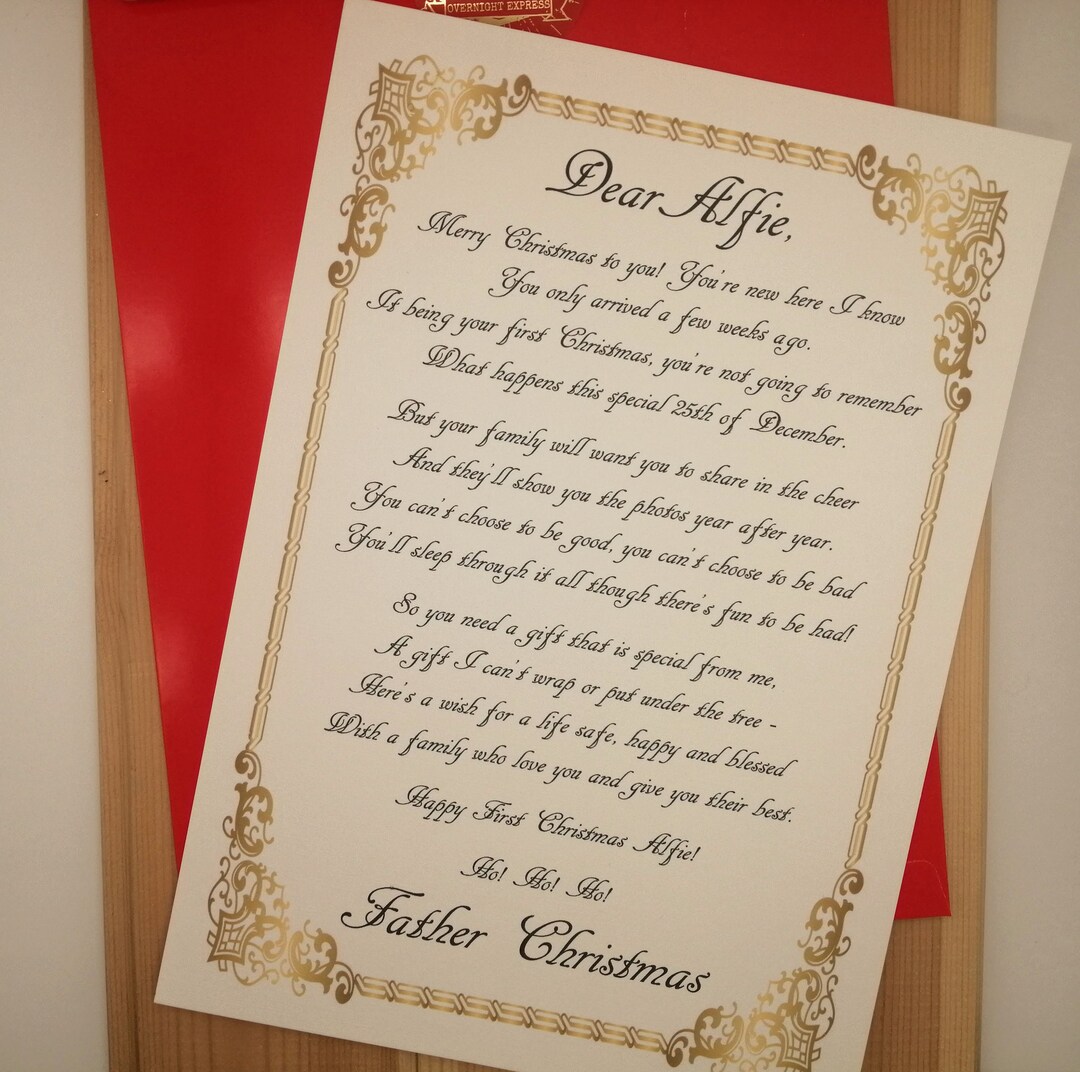 OVERNIGHT EXPRESS
Dear Alfie,
Merry Christmas to you! You're new here I know
You only arrived a few weeks ago.
It being your first Christmas, you're not going to remember
What happens this special 25th of December.
But your family will want you to share in the cheer
And they'll show you the photos year after year.
You can't choose to be good, you can't choose to be bad
You'll sleep through it all though there's fun to be had!
So you need a gift that is special from me,
A gift I can't wrap or put under the tree -
Here's a wish for a life safe, happy and blessed
With a family who love you and give you their best.
Happy First Christmas Alfie!
Ho! Ho! Ho!
Father Christmas